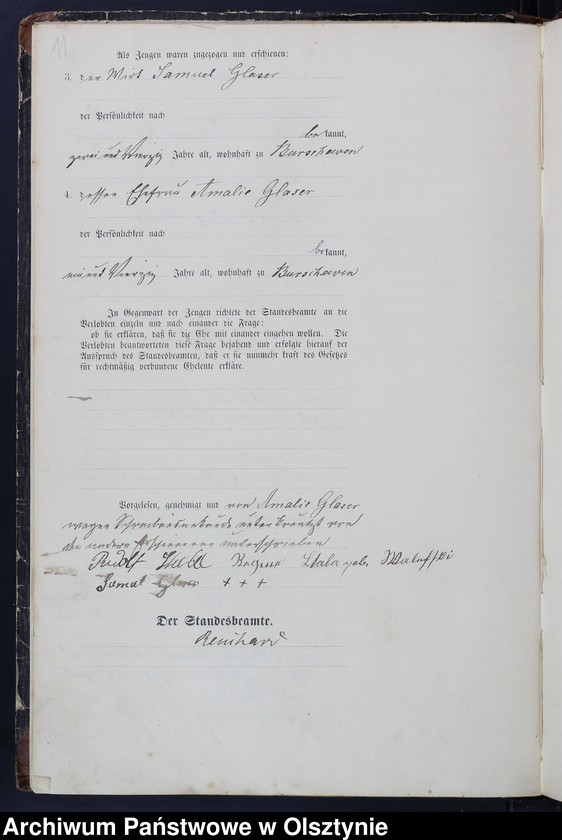 11.
Als Zeugen waren zugezogen und erschienen:
3. der Wirt Samuel Glaser
der Persönlichkeit nach
bekannt,
zwei und Vierzig Jahre alt, wohnhaft zu Burschewen
4. dessen Ehefrau Amalie Glaser
der Persönlichkeit nach
bekannt,
ein und Vierzig Jahre alt, wohnhaft zu Burschewen
In Gegenwart der Zeugen richtete der Standesbeamte an die
Verlobten einzeln und nach einander die Frage:
ob sie erklären, daß sie die Ehe mit einander eingehen wollen. Die
Verlobten beantworteten diese Frage bejahend und erfolgte hierauf der
Ausspruch des Standesbeamten, daß er sie nunmehr kraft des Gesetzes
für rechtmäßig verbundene Eheleute erkläre.
Vorgelesen, genehmigt und von Amalie Glaser
wegen Schreibensunkunde unterkreuzt von
den andern Erschienenen unterschrieben
Rudolf geb.
Samuel Glaser + + +
Der Standesbeamte.
Reinhard
Archiwum Państwowe w Olsztynie